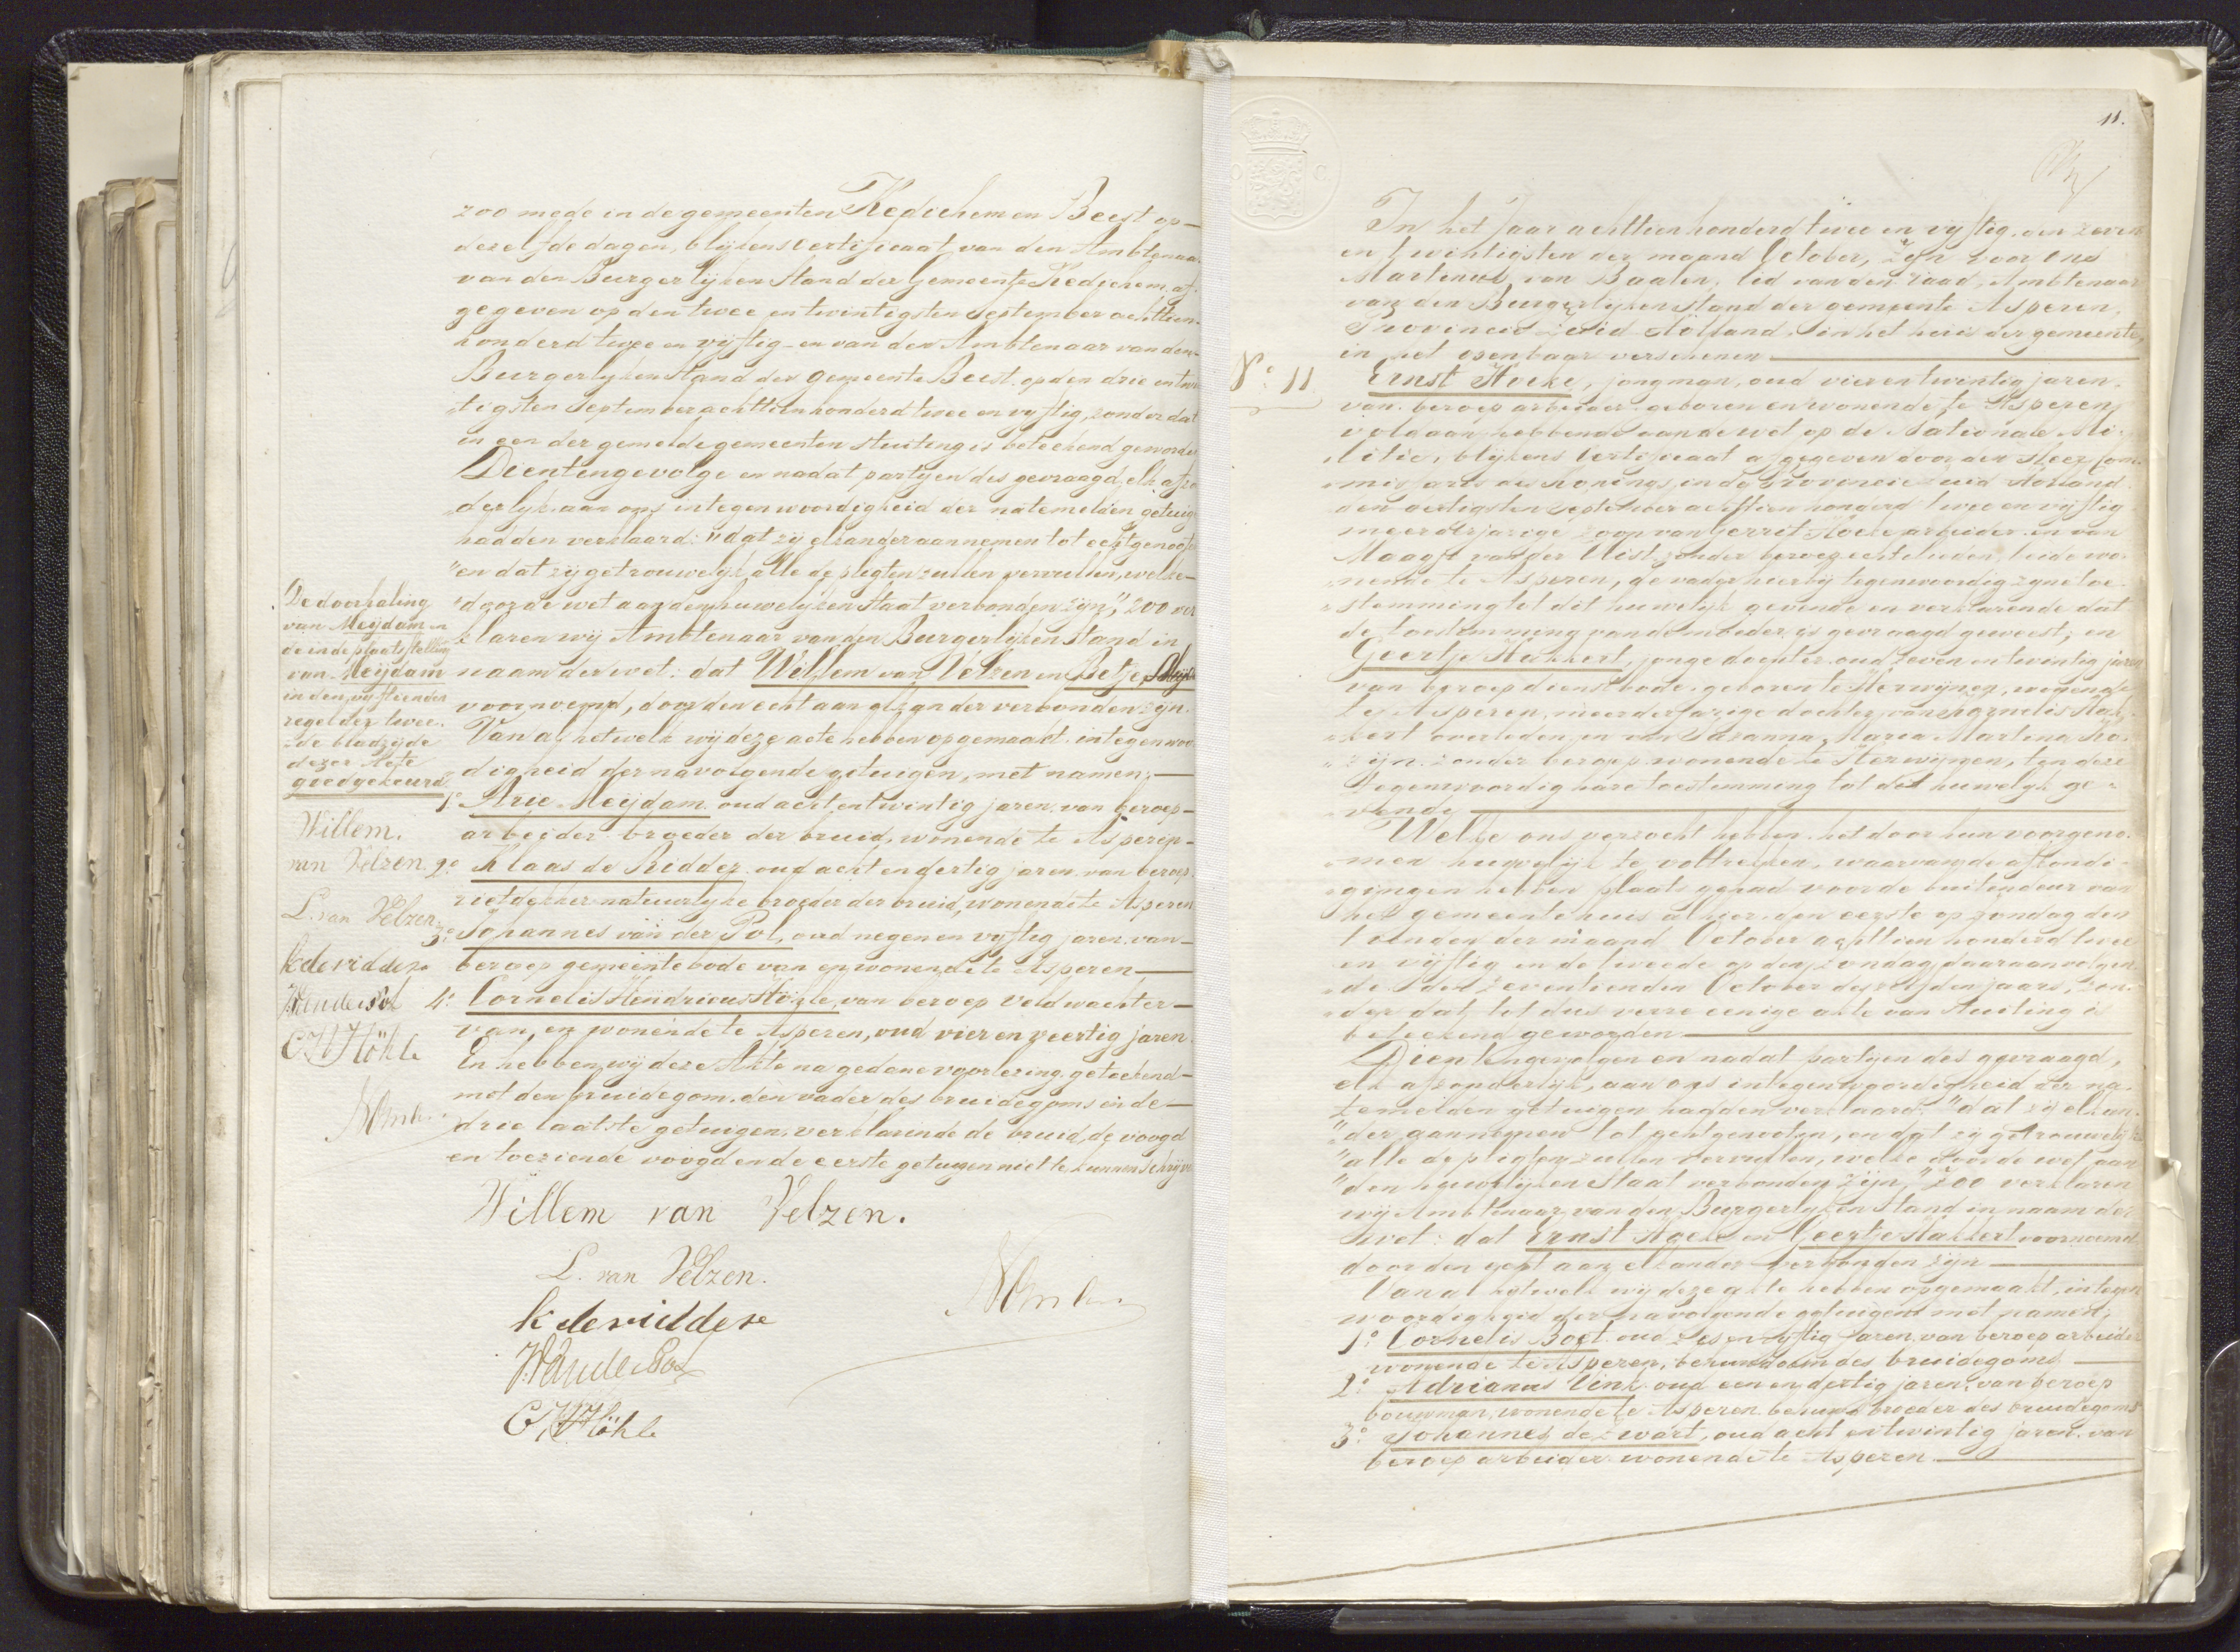 zoo mede in de gemeenten Kedichem en Beest op
dezelfde dagen, blijkens Certificaat van den Ambtenaar
van den Burgerlijken Stand der Gemeente Kedichem, af-
gegeven op den twee en twintigsten September achttien
honderd twee en vijftig en van den Ambtenaar van den
Burgerlyken Stand der gemeente Beest op den drie en twin
tigsten September achttienhonderd twee en vyftig, zonder dat
in een der gemelde gemeenten stuiting is beteekend geworden
Dientengevolge en nadat partyen des gevraagd, elk afzon
derlyk aan ons in tegenwoordigheid der natemelden getuigen
hadden verklaard: "dat zij elkander aannemen tot echtgenooten
"en dat zij getrouwelyk alle de pligten zullen vervullen, welke
"door de wet aan den huwelyken Staat verbonden zijn", zoo ver
klaren wij Ambtenaar van den Burgerlyken Stand in
naam der wet: dat Willem van Velzen en Betje
voornoemd, door den echt aan elkander verbonden zijn.
Van al hetwelk wij deze acte hebben opgemaakt in tegenwoor
digheid der navolgende getuigen, met namen:
1° Arie Meijdam oud acht en twintig jaren van beroep
arbeider broeder der bruid, wonende te Asperen
2° Klaas de Ridder oud acht en dertig jaren van beroep
rietdekker natuurlyke broeder der bruid, wonende te Asperen
3° Johannes van der Pol, oud negen en vyftig jaren van
beroep gemeentebode van en wonende te Asperen
4° Cornelis Hendricus Höhle, van beroep veldwachter
van, en wonende te Asperen, oud vier en veertig jaren.
En hebben wij deze Akte na gedane voorlezing geteekend
met den bruidegom, den vader des bruidegoms en de
drie laatste getuigen, verklarende de bruid, de voogd
en toeziende voogd en de eerste getuigen niet te kunnen schrijven
Willem van Velzen.
L. van Velzen.
k de ridder
JVanderPol
C H Höhle
De doorhaling
van Meijdam en
de in de plaatsstelling
van Meijdam
in den vyftienden
regel der twee-
de bladzyde
dezer Acte
goedgekeurd
Willem.
van Velzen
L. van Velzen
k de ridder
JVanderPol
C H Höhle
11.
N° 11
In het Jaar achttien honderd twee en vijftig den zeven
en twintigsten der maand October, zijn voor ons
Martinus van Baalen, lid van den raad, Ambtenaar
van den Burgerlyken Stand der gemeente Asperen,
Provincie Zuid Holland in het huis der gemeente,
in het openbaar verschenen
Ernst Hoeke, jongman, oud vier en twintig jaren
van beroep arbeider geboren en wonende te Asperen
voldaan hebbende aan de wet op de Nationale Mi
litie, blijkens Certificaat afgegeven door den Heer Com
missaris des Konings in de Provincie Zuid Holland
den dertigsten September achttien honderd twee en vijftig
meerderjarige zoon van Gerrit Hoeke arbeider en van
Maagje van der Vlist, zonder beroep echtelieden, beide wo
nende te Asperen, de vader hierbij tegenwoordig zyne toe
stemming tot dit huwelyk gevende en verklarende dat
de toestemming van de moeder is gevraagd geweest; en
Geertje Hakkert, jonge dochter oud zeven en twintig jaren
van beroep dienstbode geboren te Herwijnen, wonende
te Asperen, meerderjarige dochter van Kornelis Hak
kert overleden en van Suzanna Maria Martina Ko
zijn zonder beroep wonende te Herwijnen, ten deze
tegenwoordig hare toestemming tot dit huwelyk ge
vende
Welke ons verzocht hebben het door hun voorgeno
men huwelyk te voltrekken, waarvan de afkondi
gingen hebben plaats gehad voor de buitendeur van
het gemeentehuis alhier den eerste op zondag den
tienden der maand October achttien honderd twee
en vijftig en de tweede op den zondag daaraanvolgen
de den zeventienden October deszelfden jaars, zon
der dat tot dus verre eenige akte van Stuiting is
beteekend geworden
Dientengevolgen en nadat partyen des gevraagd,
elk afzonderlyk, aan ons in tegenwoordigheid der na
temelden getuigen hadden verklaard: "dat zij elkan
"der aannemen tot echtgenooten, en dat zij getrouwelyk
"alle de pligten zullen vervullen, welke door de wet aan
"den huwelyken Staat verbonden zijn", zoo verklaren
wij Ambtenaar van den Burgerlyken Stand in naam der
wet: dat Ernst Hoeke en Geertje Hakkert voornoemd
door den echt aan elkander verbonden zijn
Van al hetwelk wij deze akte hebben opgemaakt, in tegen
woordigheid der navolgende getuigen met namen;
1° Cornelis Boel oud zes en vyftig jaren van beroep arbeider
wonende te Asperen, behuwdoom des bruidegoms
2° Adrianus Vink oud een en dertig jaren, van beroep
bouwman, wonende te Asperen behuwd broeder des bruidegoms
3° Johannes de Zwart, oud acht en twintig jaren van
beroep arbeider wonende te Asperen